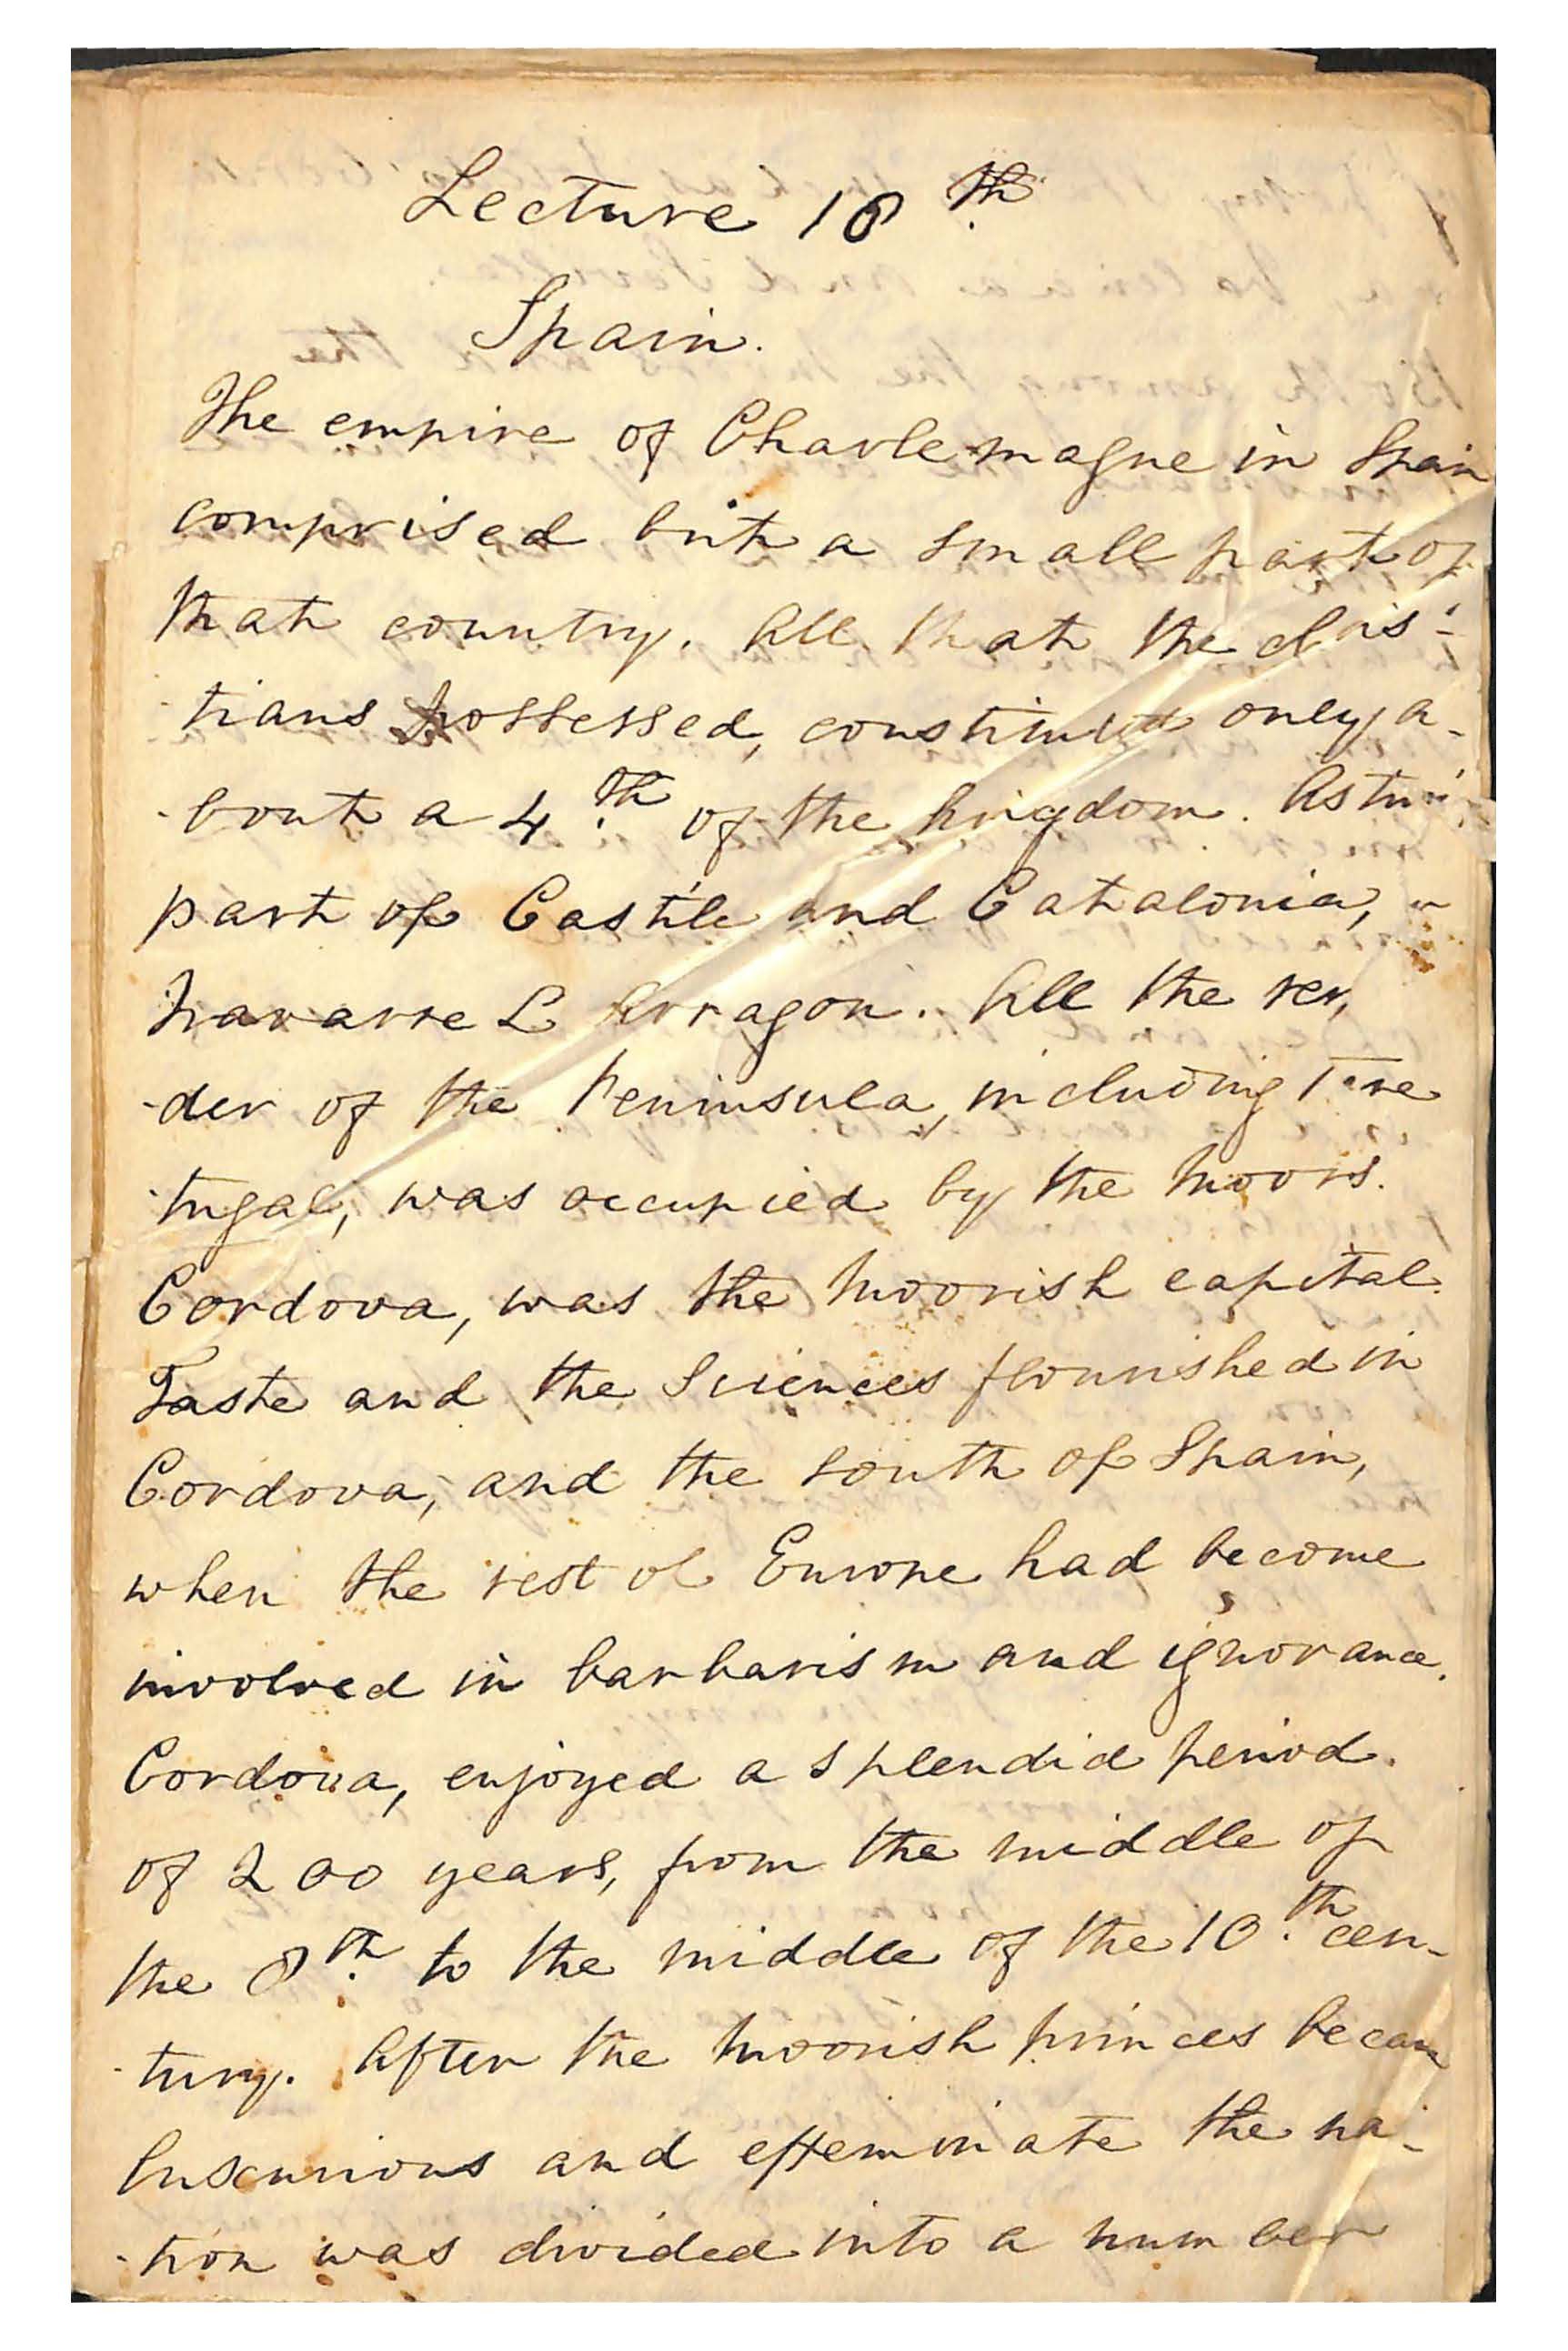 Lecture 18th
Spain.
The empire of Charlemagne in Spain
comprised but a small part of
that country. All that the chris-
tians possessed, constituted only a-
bout a 4th of the kingdom. Asturi
part of Castile and Catalonia,
Navarre & Arragon. All the
der of the Peninsula, including
tugal, was occupied by the Moors.
Cordova, was the Moorish capital.
Taste and the Sciences flourished in
Cordova, and the south of Spain,
when the rest of Europe had become
involved in barbarism and ignorance.
Cordova, enjoyed a splendid period.
of 200 years, from the middle of
the 8th to the middle of the 10th cen-
tury. After the Moorish princes becam
luxurious and effeminate the na-
tion was divided into a number